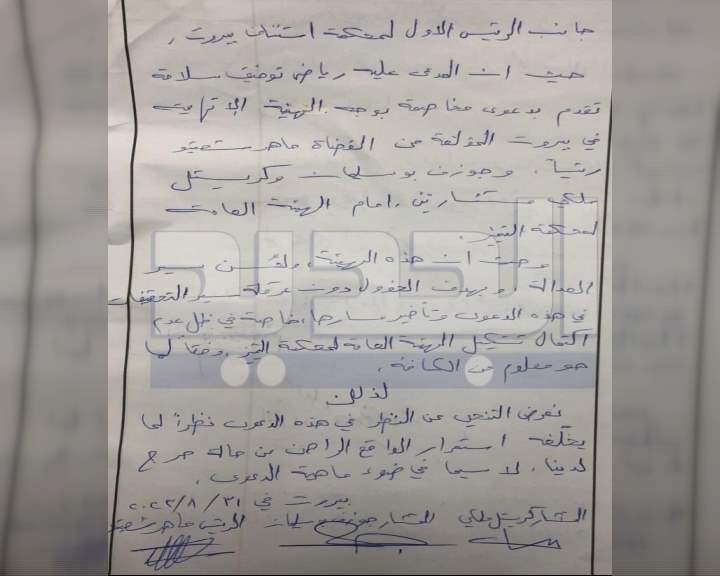 جانب الرئيس الاول لمحكمة استئناف بيروت،
حيث ان المدعى عليه رياض توفيق سلامة
تقدم بدعوى مخاصمة بوجه الهيئة الاتهامية
في بيروت المؤلفة من القضاة ماهر شعيتو
رئيساً، وجوزف بو سليمان وكريستل
ملكي مستشارين، امام الهيئة العامة
لمحكمة التمييز.
وحيث ان هذه الهيئة، ولحسن سير
العدالة، وبهدف الحؤول دون عرقلة سير التحقيقات
في هذه الدعوى وتأخير مسارها، خاصة في ظل عدم
اكتمال تشكيل الهيئة العامة لمحكمة التمييز، وفقاً لما
هو معلوم من الكافة،
لذلك
نعرض التنحي عن النظر في هذه الدعوى نظراً لما
يخلّفه استمرار الواقع الراهن من حالة حرج
لدينا، لا سيما في ضوء ماهية الدعوى.
بيروت في ٣١/٨/٢٠٢٢
المستشار كريستل ملكي المستشار جوزف بو سليمان الرئيس ماهر شعيتو
الجديد